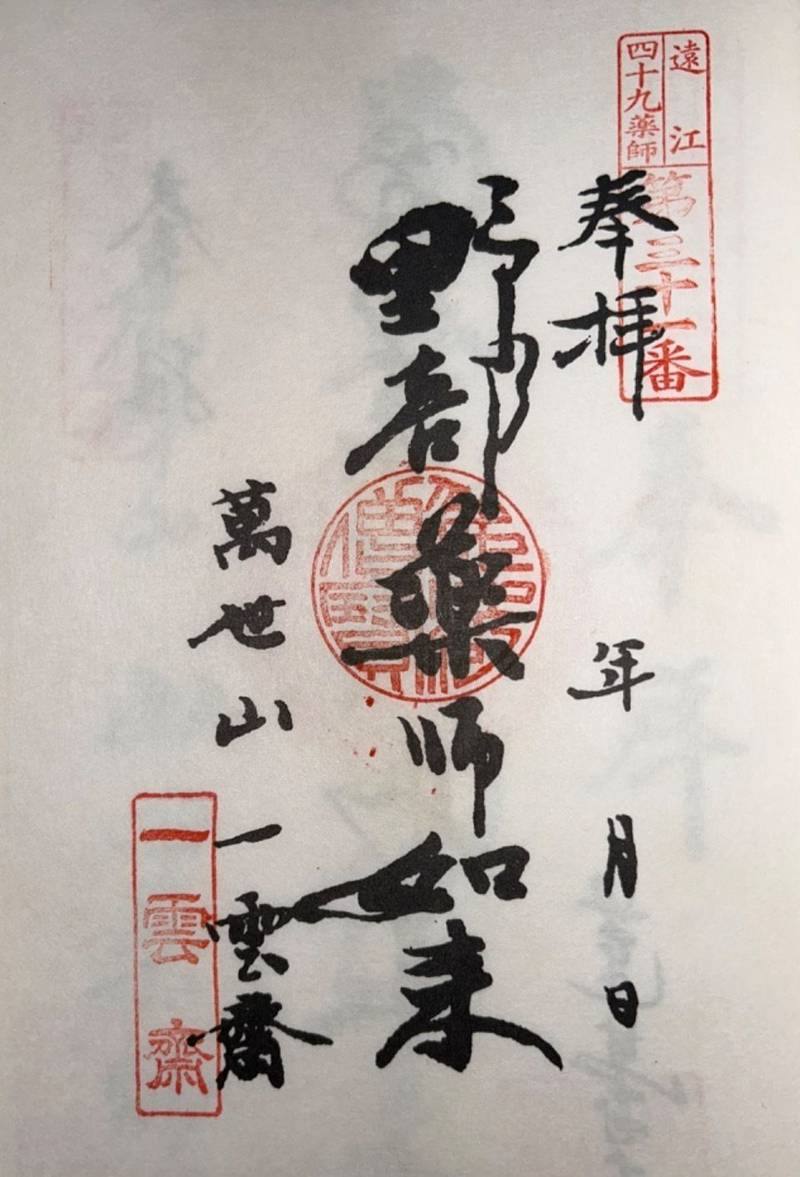 遠江
四十九薬師
第三十一番
奉拝
年 月 日
野部薬師如来
萬世山 一雲齋
一雲齋